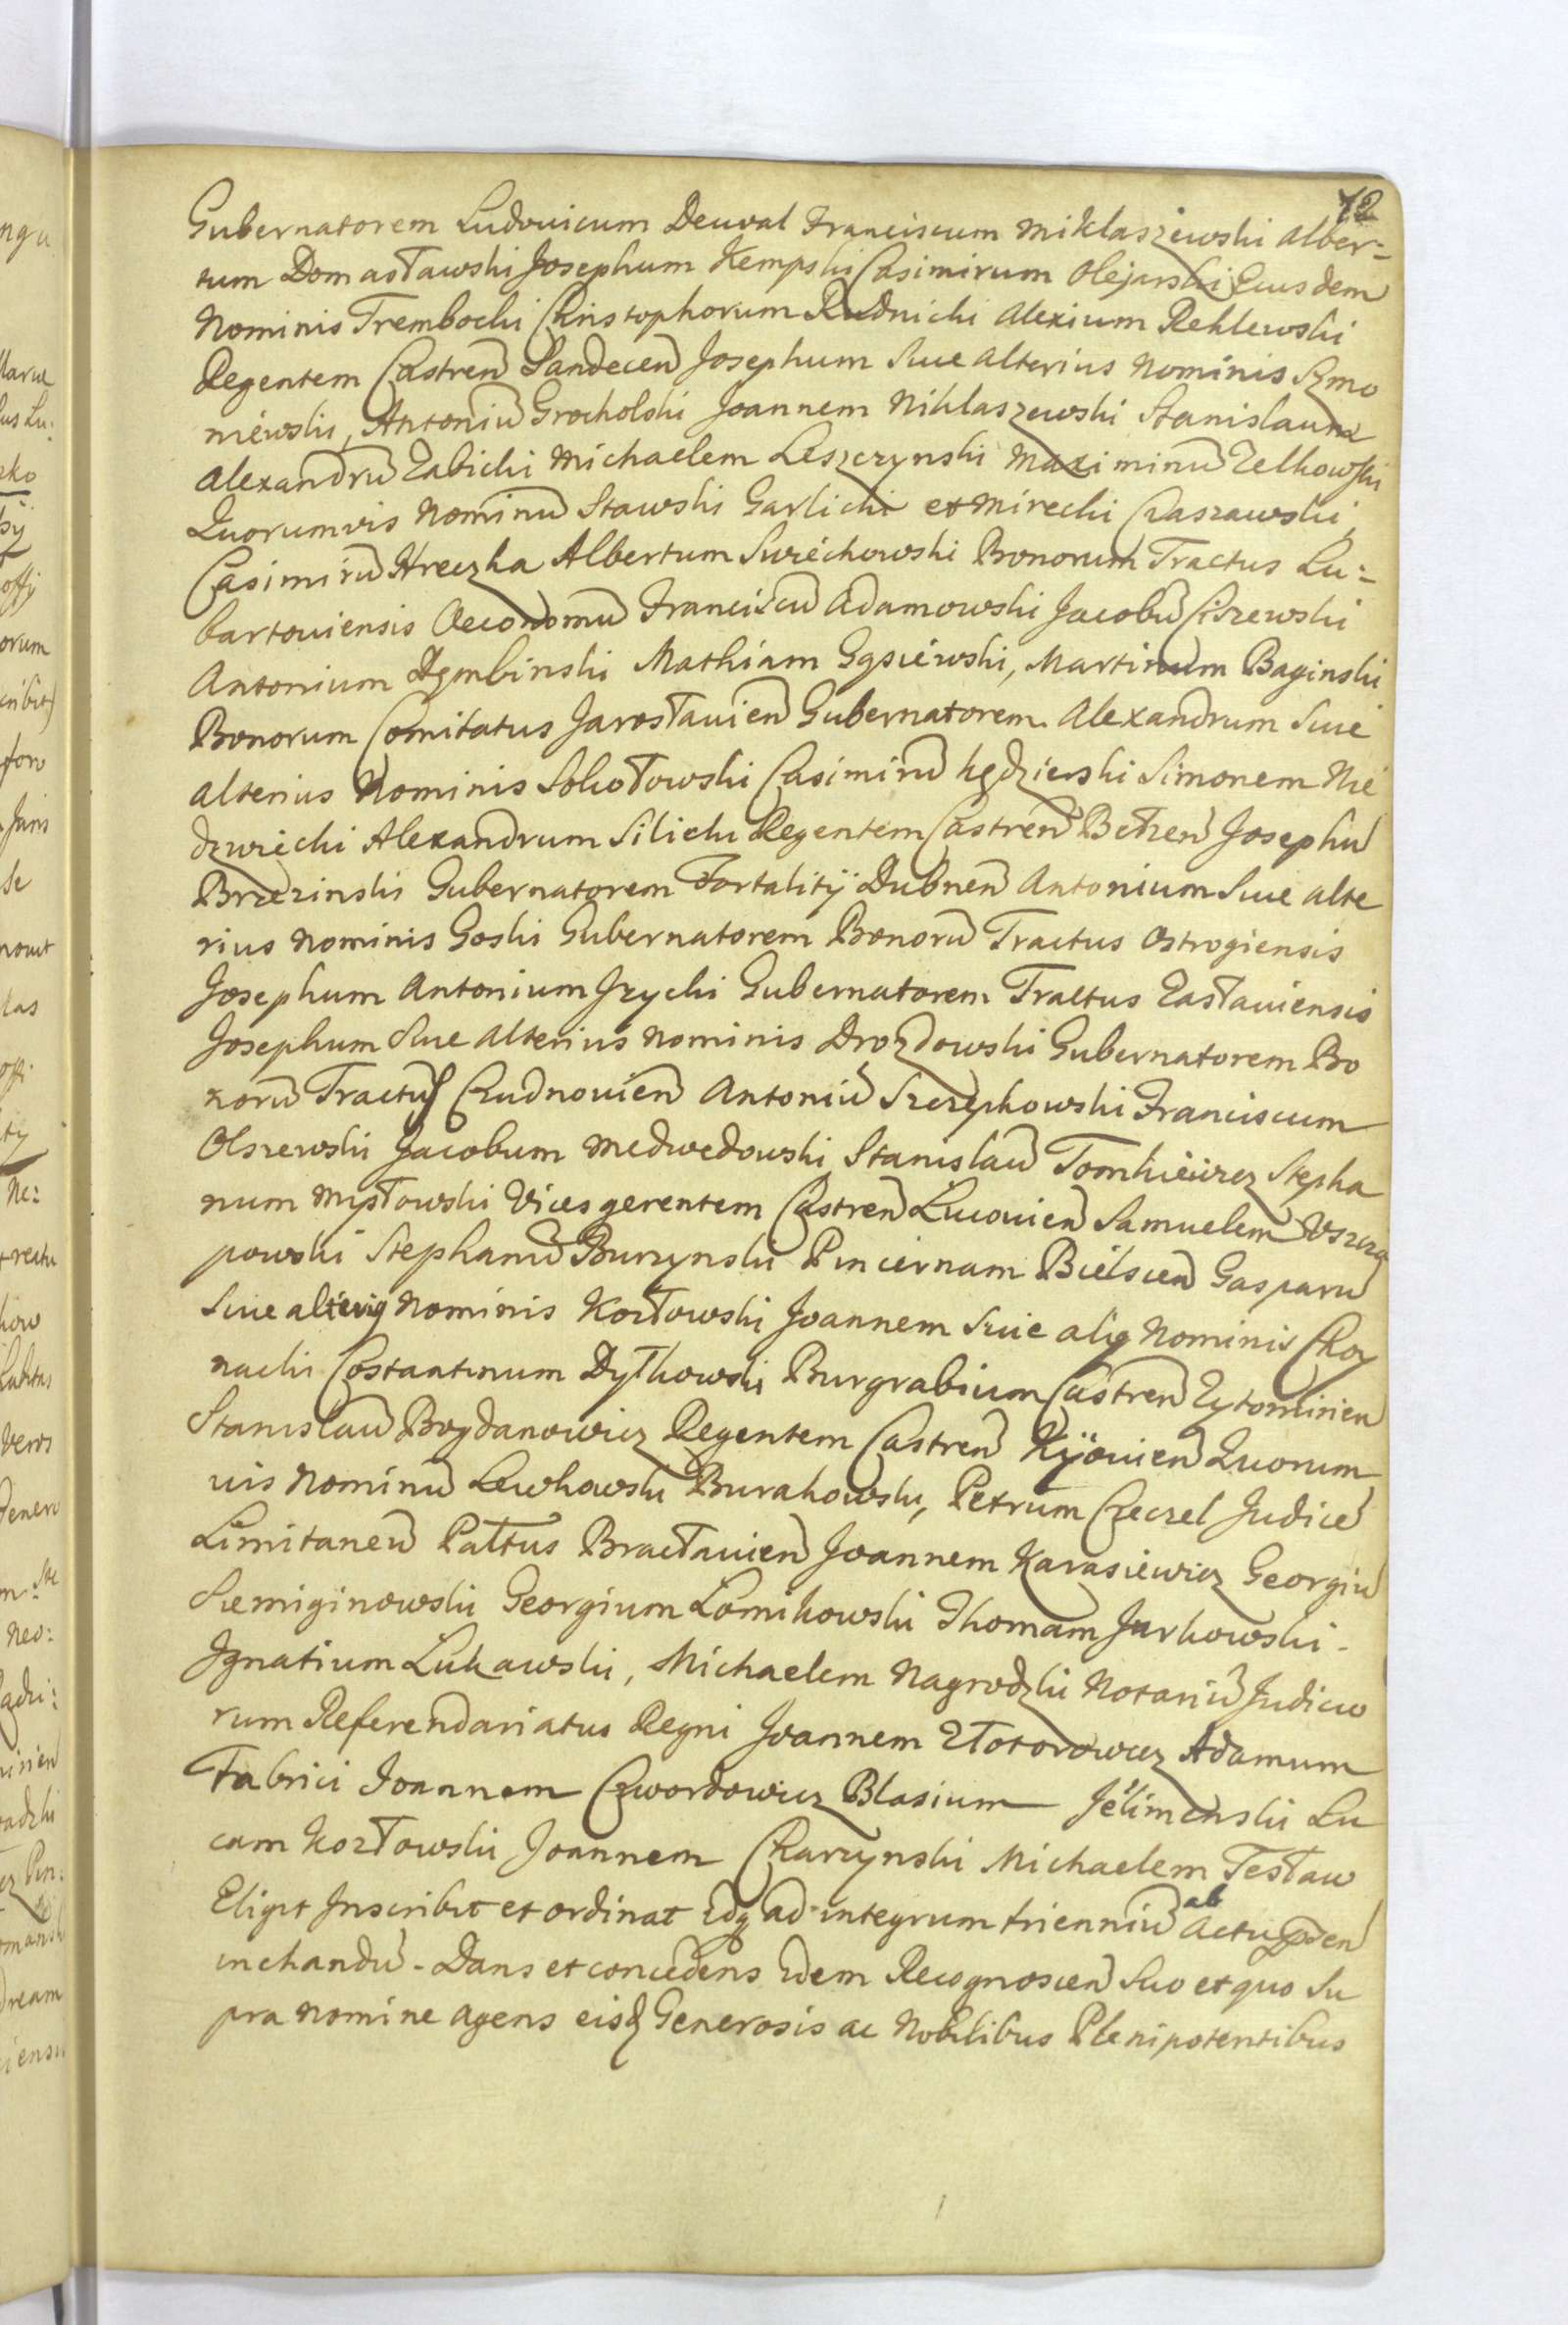 12
Gubernatorem Ludouicum Deuval Franciscum Miklaszewski Alber=
tum Domasławski Josephum Kempski Casimirum Olejarski Eiusdem
Nominis Trembocki Christophorum Rudnicki Alexium Rehlewski
Regentem Castren Sandecen Josephum Siue alterius Nominis Szmo
niewski, Antoniu Grocholski Joannem Niklaszewski Stanislaum
Alexandru Zabicki Michaelem Leszczynski Maximinu Zelkowski
Quorumvis Nominu Stawski Garlicki et Mirecki Czaszawski,
Casimiru Hreczka Albertum Swiechowski Bonorum Tractus Lu:=
bartouiensis Oeconomu Franciscu Adamowski Jacobu Ciszewski
Antonium Dembinski Mathiam Gąsiewski, Martinum Baginski
Bonorum Comitatus Jarosłauien Gubernatorem Alexandrum Siue
alterius Nominis Sokołowski Casimiru Kędzierski Simonem Nie
dzwiecki Alexandrum Silicki Regentem Castren Bełzen Josephu
Brzezinski Gubernatorem Fortalitij Dubnen Antonium Siue alte
rius Nominis Goski Gubernatorem Bonoru Tractus Ostrogiensis
Josephum Antonium Jzycki Gubernatorem Tractus Zasłauiensis
Josephum Siue alterius nominis Drozdowski Gubernatorem Bo
noru Tractus Czudnouien Antoniu Szczepkowski Franciscum
Olszewski Jacobum Medwedowski Stanislau Tomkiewicz Stepha
num Mysłowski Vices gerentem Castren Luconien Samuelem Vszcza
powski Stephanu Burzynski Pincernam Bielscen Gasparu
Siue alterig Nominis Kozłowski Joannem Siue alig Nominis Choy
nacki Costantinum Dytkowski Burgrabium Castren Zytomirien
Stanislau Bogdanowicz Regentem Castren Kijouien Quorum
uis Nominu Lewkowski Burakowski, Petrum Czeczel Judice
Limitaneu Pałtus Bracłauien Joannem Karasiewicz Georgiu
Siemiginowski Georgium Lomikowski Thomam Jurkowski -
Jgnatium Lukawski, Michaelem Nagrodzki Notariu Judicio
rum Referendariatus Regni Joannem Złotorowicz Adamum
Fabrici Joannem Czwordowicz Blasium Jelimenski Lu
cam Kozłowski Joannem Charzynski Michaelem Tesław
Eligit Jnscribit et ordinat Idq ad integrum trienniu ab Actu pden
inchandu - Dans et concedens Idem Recognoscen Suo et quo Su
pra nomine agens eisd Generosis ac Nobilibus Plenipotentibus